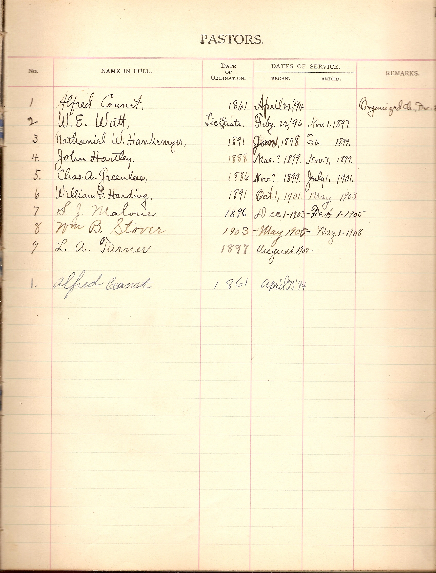 PASTORS.
No. NAME IN FULL. DATE OF ORDINATION. DATES OF SERVICE. BEGAN. ENDED. REMARKS.
1 Alfred 1861 April 29/94 Organized Ch.
2 W. E. Watt, Licentiate. Feby. 23/96 Nov 1. 1897.
3 Nathaniel W. 1891 1898 1899.
4. John Hartley. 1886 1899. Nov. 1899.
5. Chas. A. Greenlee. 1886 Nov. 1899. July 1, 1901.
6 William F. Harding, 1891 Oct 1, 1901 May, 1903
7 S J. Malone 1896 Dec 1-1903 - 1-1905
8 Wm B. Stover 1903 - May 1905 - May 1-1908
9 L. A. Turner 1897 August 1908.
1. Alfred 1861 April 29/94